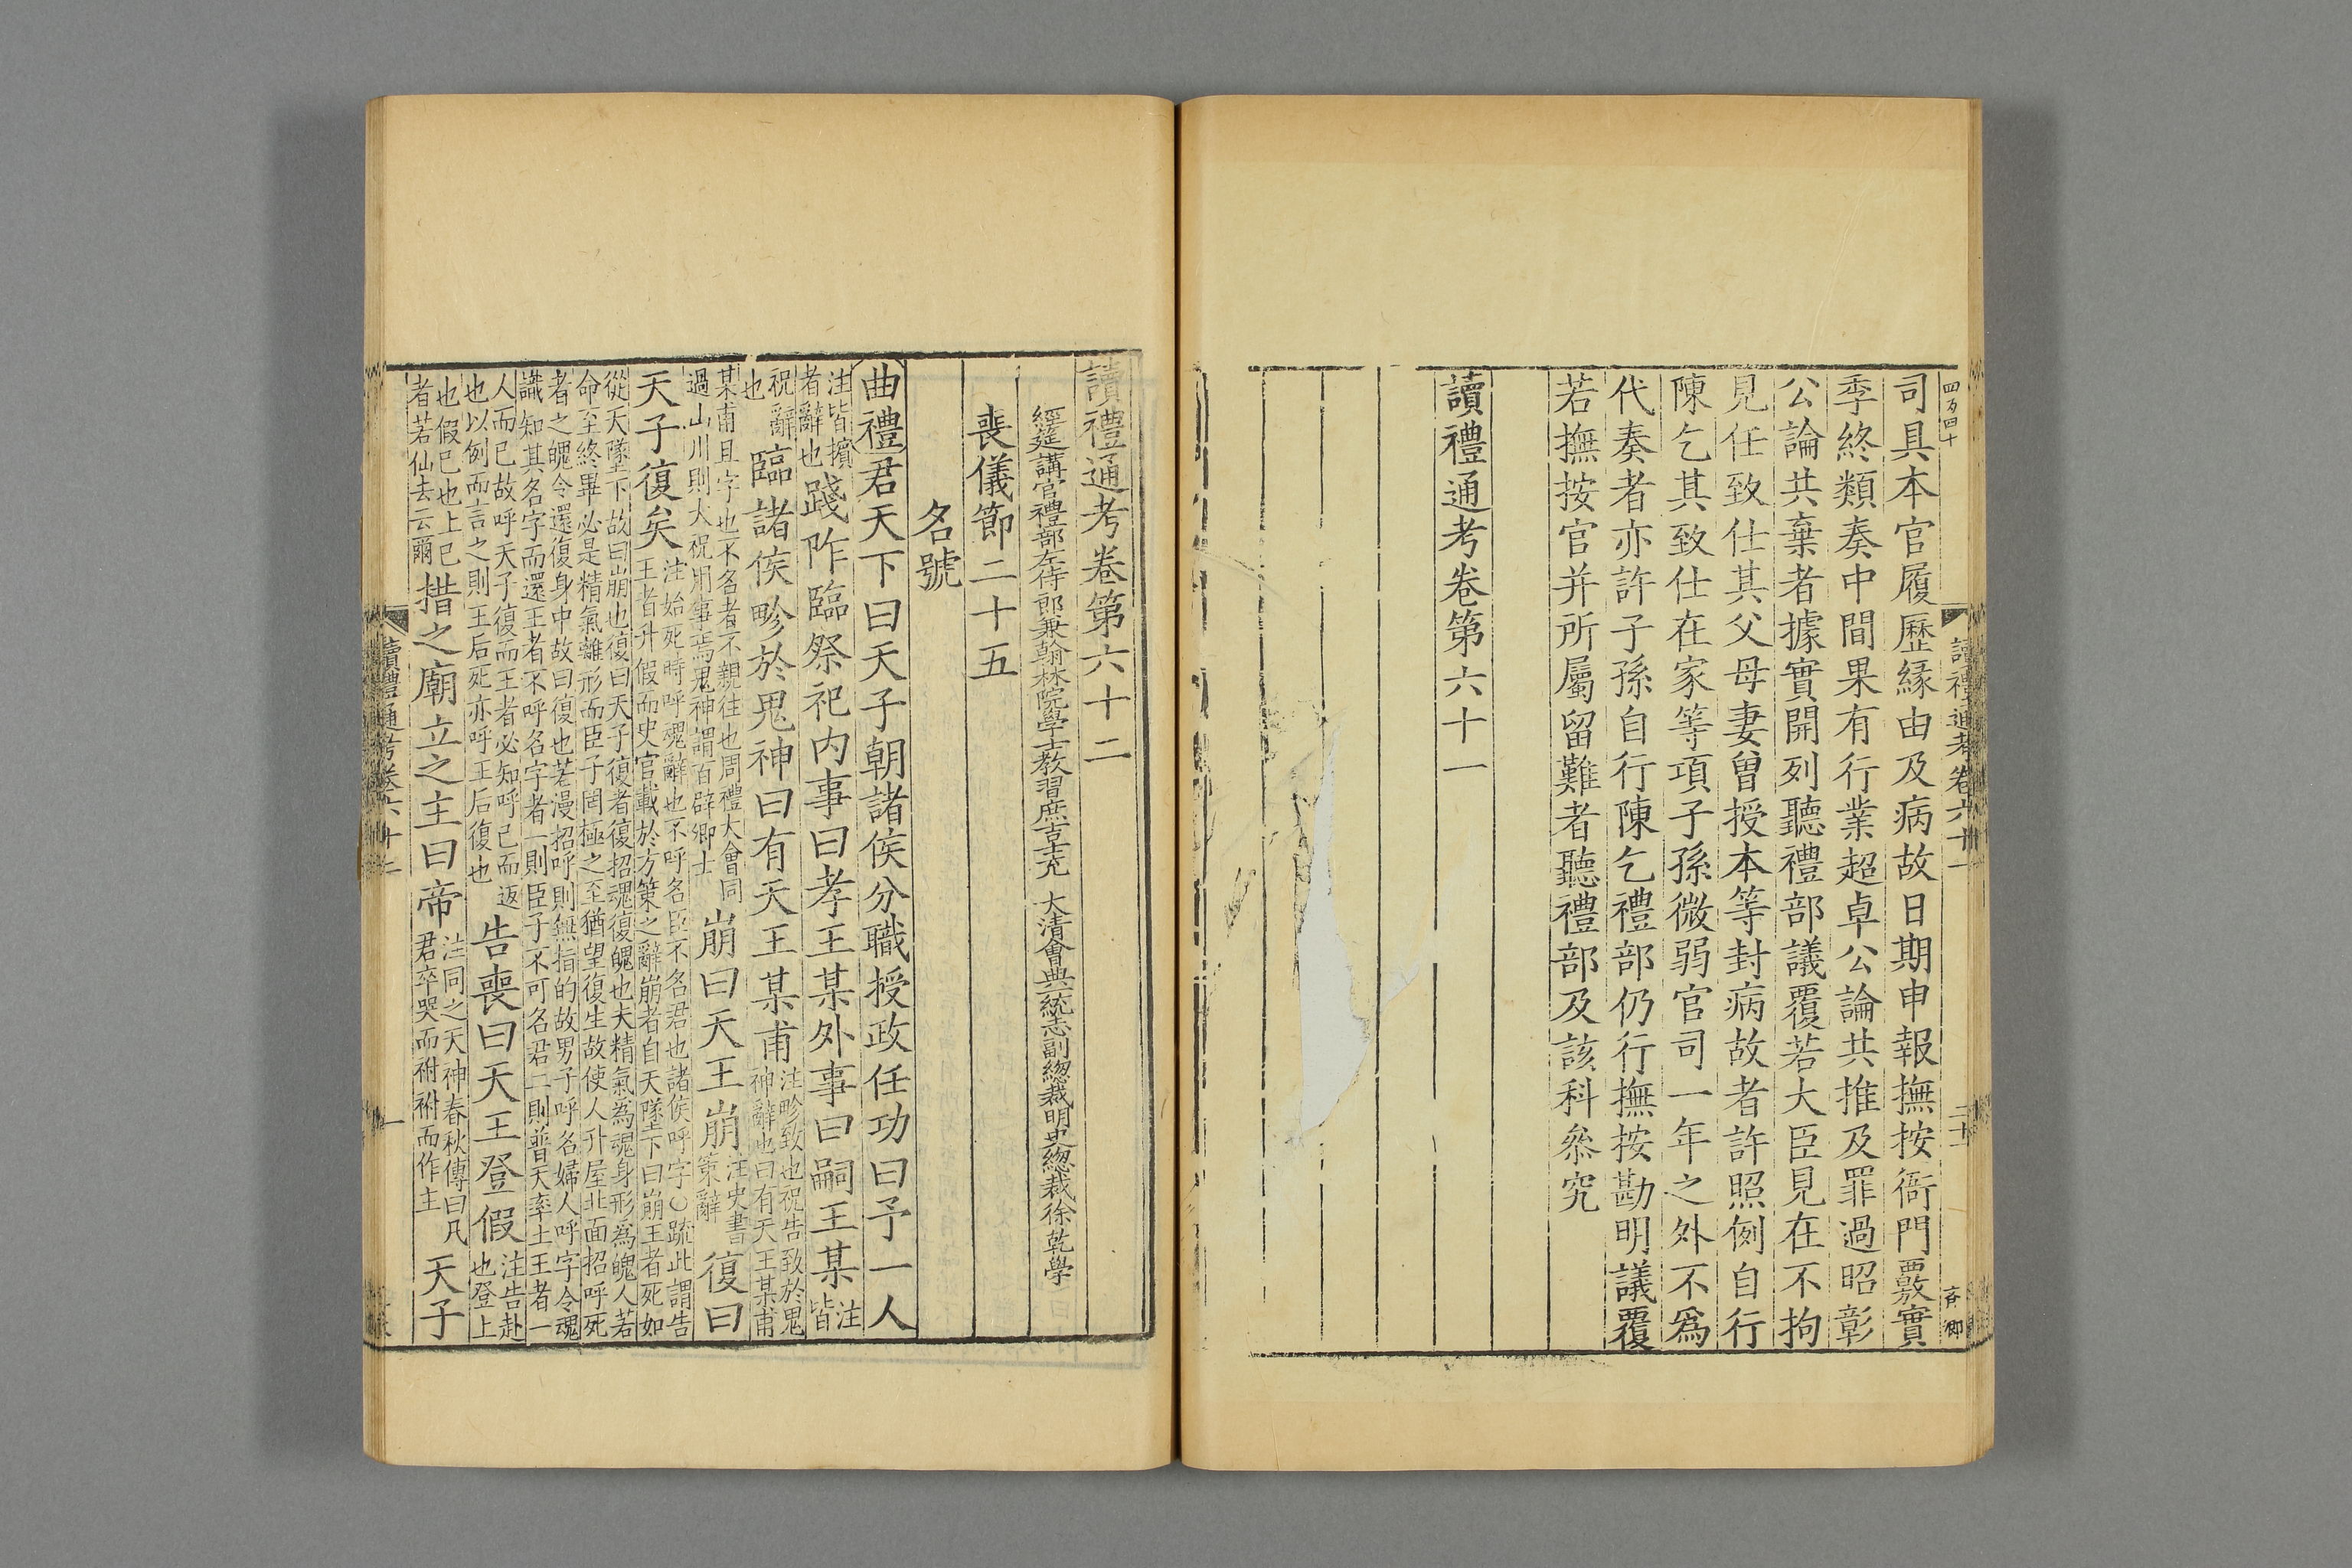 四百四十
讀禮通考卷六十一
二十
司具本官履歷緣由及病故日期申報撫按衙門覈實
季終類奏中間果有行業超卓公論共推及罪過昭彰
公論共棄者據實開列聽禮部議覆若大臣見在不拘
見任致仕其父母妻曾授本等封病故者許照例自行
陳乞其致仕在家等項子孫微弱官司一年之外不爲
代奏者亦許子孫自行陳乞禮部仍行撫按勘明議覆
若撫按官并所屬留難者聽禮部及該科叅究
讀禮通考卷第六十一
讀禮通考卷第六十二
經筵講官禮部左侍郎兼翰林院學士教習庶吉士充 大清會典一統志副總裁明史總裁徐乾學
喪儀節二十五
名號
曲禮君天下曰天子朝諸侯分職授政任功曰予一人
注皆擯者辭也踐阼臨祭祀内事曰孝王某外事曰嗣王某注皆
祝辭也臨諸侯畛於鬼神曰有天王某甫注畛致也祝告致於鬼神辭也曰有天王某甫
某甫且字也不名者不親往也周禮大會同過山川則大祝用事焉鬼神謂百辟卿士崩曰天王崩注史書策辭復曰
天子復矣注始死時呼魂辭也不呼名臣不名君也諸侯呼字○疏此謂告王者升假而史官載於方策之辭崩者自天墜下曰崩王者死如
從天墜下故曰崩也復曰天子復者復招魂復魄也夫精氣為魂身形為魄人若命至終畢必是精氣離形而臣子罔極之至猶望復生故使人升屋北面招呼死
者之魄令還復身中故曰復也若漫招呼則無指的故男子呼名婦人呼字令魂識知其名字而還王者不呼名字者一則臣子不可名君二則普天率土王者一
人而已故呼天子復而王者必知呼已而返也以例而言之則王后死亦呼王后復也告喪曰天王登假注告赴也登上
也假已也上已者若仙去云爾措之廟立之主曰帝注同之天神春秋傳曰凡君卒哭而祔祔而作主天子
讀禮通考卷六十二
一